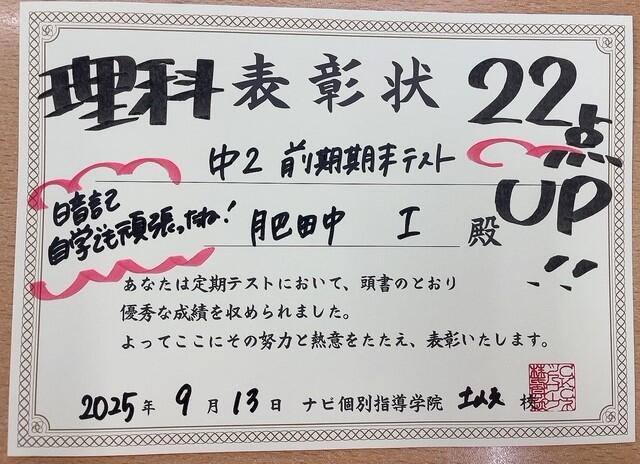 理科表彰状
22点UP!!
中2 前期期末テスト
暗記
自学でも頑張ったね!
肥田中 I 殿
あなたは定期テストにおいて、頭書のとおり
優秀な成績を収められました。
よってここにその努力と熱意をたたえ、表彰いたします。
2025年 9月13日 ナビ個別指導学院